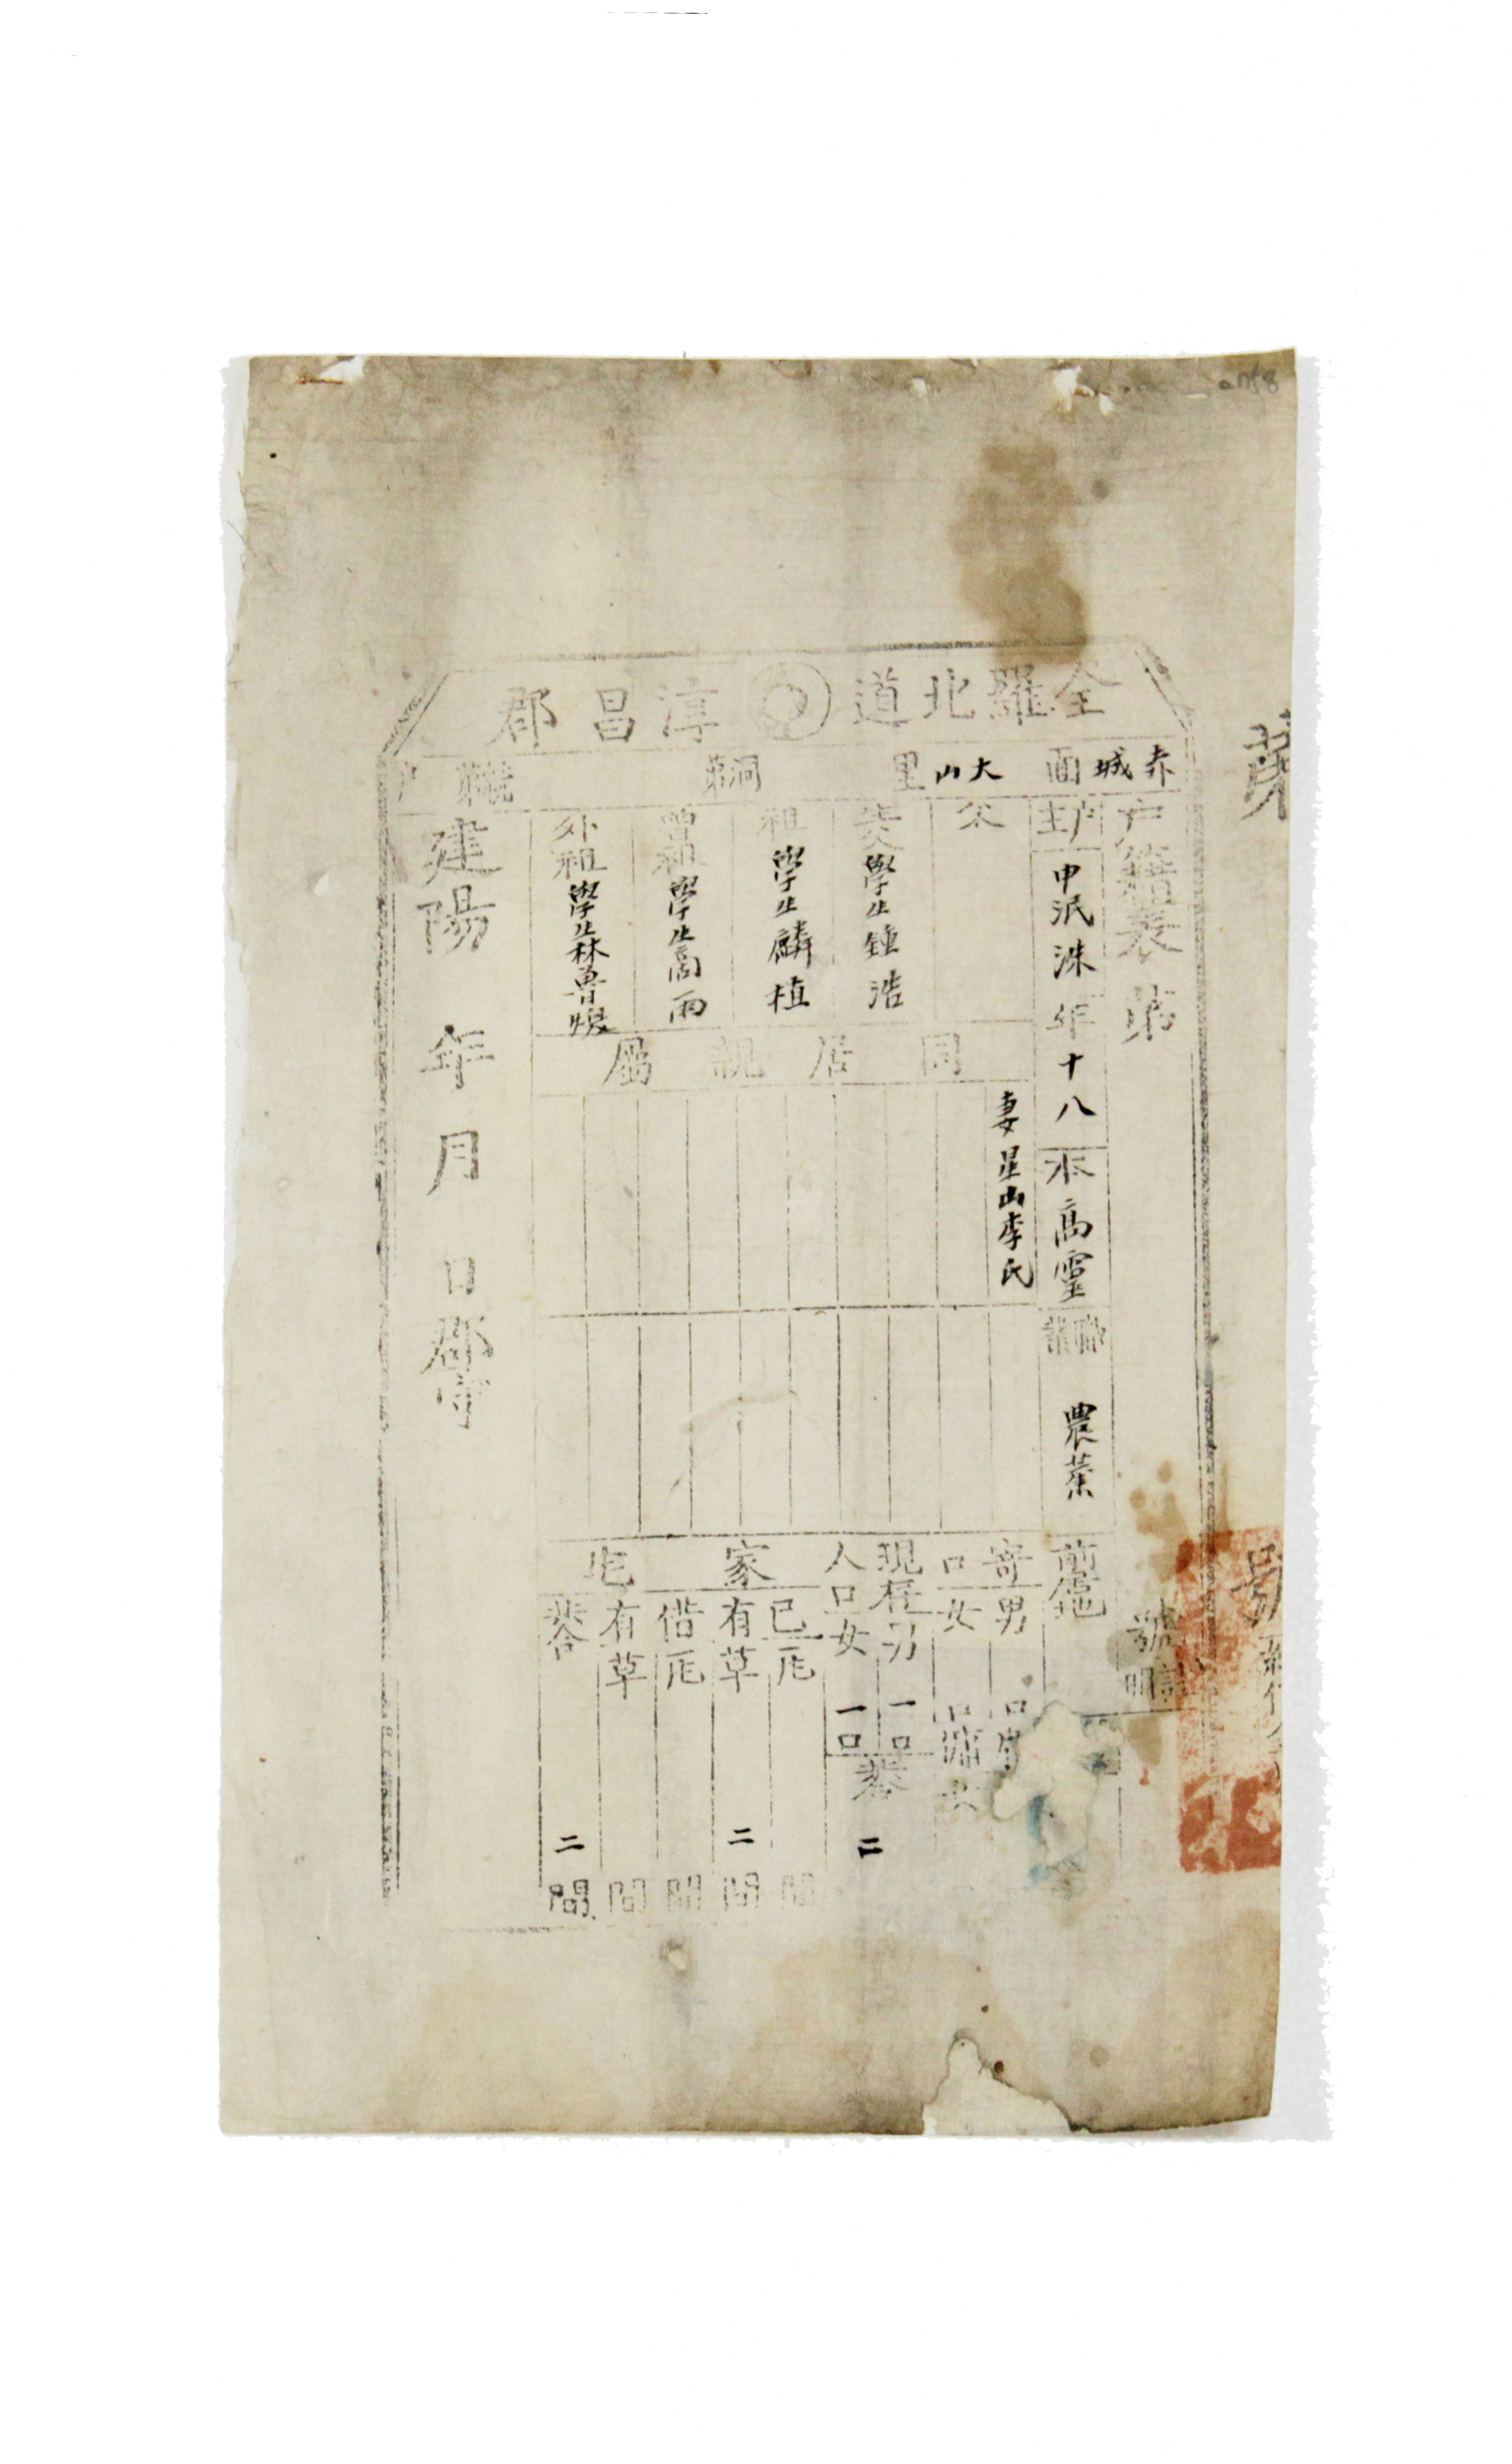 全羅北道 淳昌郡
赤城面 大山里 洞第 統第 戶
戶籍表 第 號
戶主 申泯洙 年十八 本高靈 職業 農業 前居地
父
生父 學生鍾浩
祖 學生麟植
曾祖 學生高雨
外祖 學生林魯煥
同居親屬
妻星山李氏
寄口 男 口
女 口
現存人口 男 一口
女 一口
共 二
家宅
已 瓦 間
有 草 二間
借 瓦 間
有 草 間
共合 二間
建陽 年 月 日 郡守
第
號